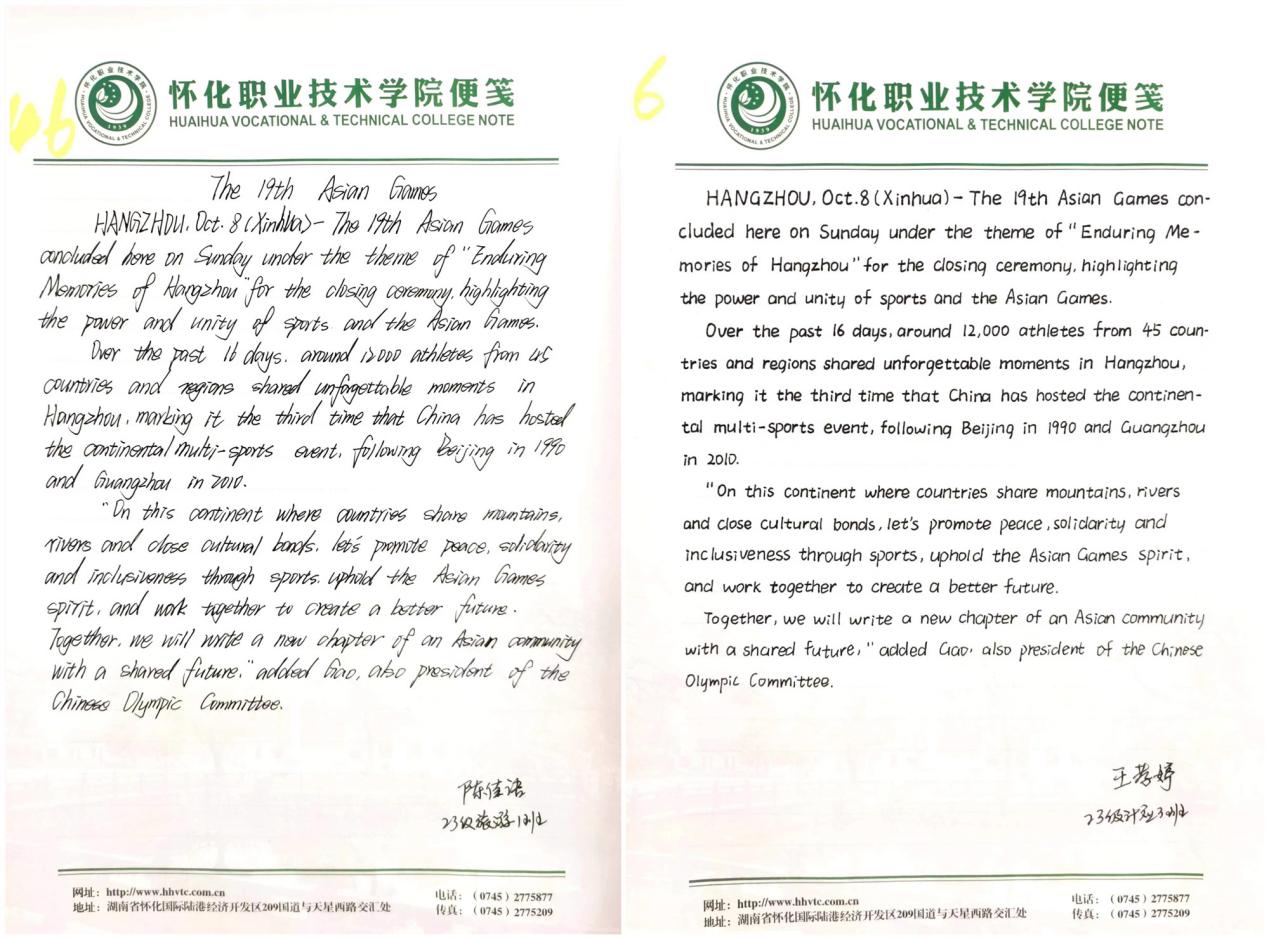 46
怀化职业技术学院便笺
HUAIHUA VOCATIONAL & TECHNICAL COLLEGE NOTE
怀化职业技术学院
HUAIHUA VOCATIONAL & TECHNICAL COLLEGE
1939
The 19th Asian Games
HANGZHOU, Oct. 8 (Xinhua) - The 19th Asian Games
concluded here on Sunday under the theme of "Enduring
Memories of Hangzhou" for the closing ceremony, highlighting
the power and unity of sports and the Asian Games.
Over the past 16 days, around 12,000 athletes from 45
countries and regions shared unforgettable moments in
Hangzhou, marking it the third time that China has hosted
the continental multi-sports event, following Beijing in 1990
and Guangzhou in 2010.
"On this continent where countries share mountains,
rivers and close cultural bonds, let's promote peace, solidarity
and inclusiveness through sports, uphold the Asian Games
spirit, and work together to create a better future.
Together, we will write a new chapter of an Asian community
with a shared future," added Gao, also president of the
Chinese Olympic Committee.
陈佳
23级旅游1班
网址：http://www.hhvtc.com.cn
地址：湖南省怀化国际陆港经济开发区209国道与天星西路交汇处
电话：（0745）2775877
传真：（0745）2775209
6
怀化职业技术学院便笺
HUAIHUA VOCATIONAL & TECHNICAL COLLEGE NOTE
怀化职业技术学院
HUAIHUA VOCATIONAL & TECHNICAL COLLEGE
1939
HANGZHOU, Oct. 8 (Xinhua) - The 19th Asian Games con-
cluded here on Sunday under the theme of "Enduring Me-
mories of Hangzhou" for the closing ceremony, highlighting
the power and unity of sports and the Asian Games.
Over the past 16 days, around 12,000 athletes from 45 coun-
tries and regions shared unforgettable moments in Hangzhou,
marking it the third time that China has hosted the continen-
tal multi-sports event, following Beijing in 1990 and Guangzhou
in 2010.
"On this continent where countries share mountains, rivers
and close cultural bonds, let's promote peace, solidarity and
inclusiveness through sports, uphold the Asian Games spirit,
and work together to create a better future.
Together, we will write a new chapter of an Asian community
with a shared future," added Gao, also president of the Chinese
Olympic Committee.
王孝婷
23级计应3班
网址：http://www.hhvtc.com.cn
地址：湖南省怀化国际陆港经济开发区209国道与天星西路交汇处
电话：（0745）2775877
传真：（0745）2775209